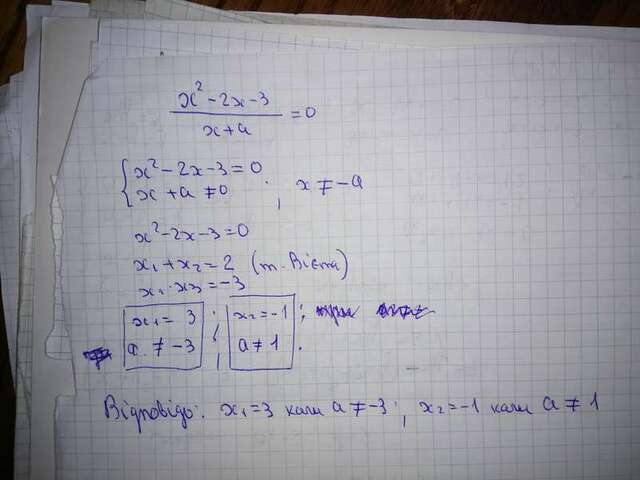 x² - 2x - 3
x + a
= 0
x² - 2x - 3 = 0
x + a ≠ 0 ; x ≠ -a
x² - 2x - 3 = 0
x₁ + x₂ = 2 (т. Вієта)
x₁ · x₂ = -3
x₁ = 3 ; x₂ = -1 ;
a ≠ -3 ; a ≠ 1 .
Відповідь: x₁ = 3 коли a ≠ -3 ; x₂ = -1 коли a ≠ 1